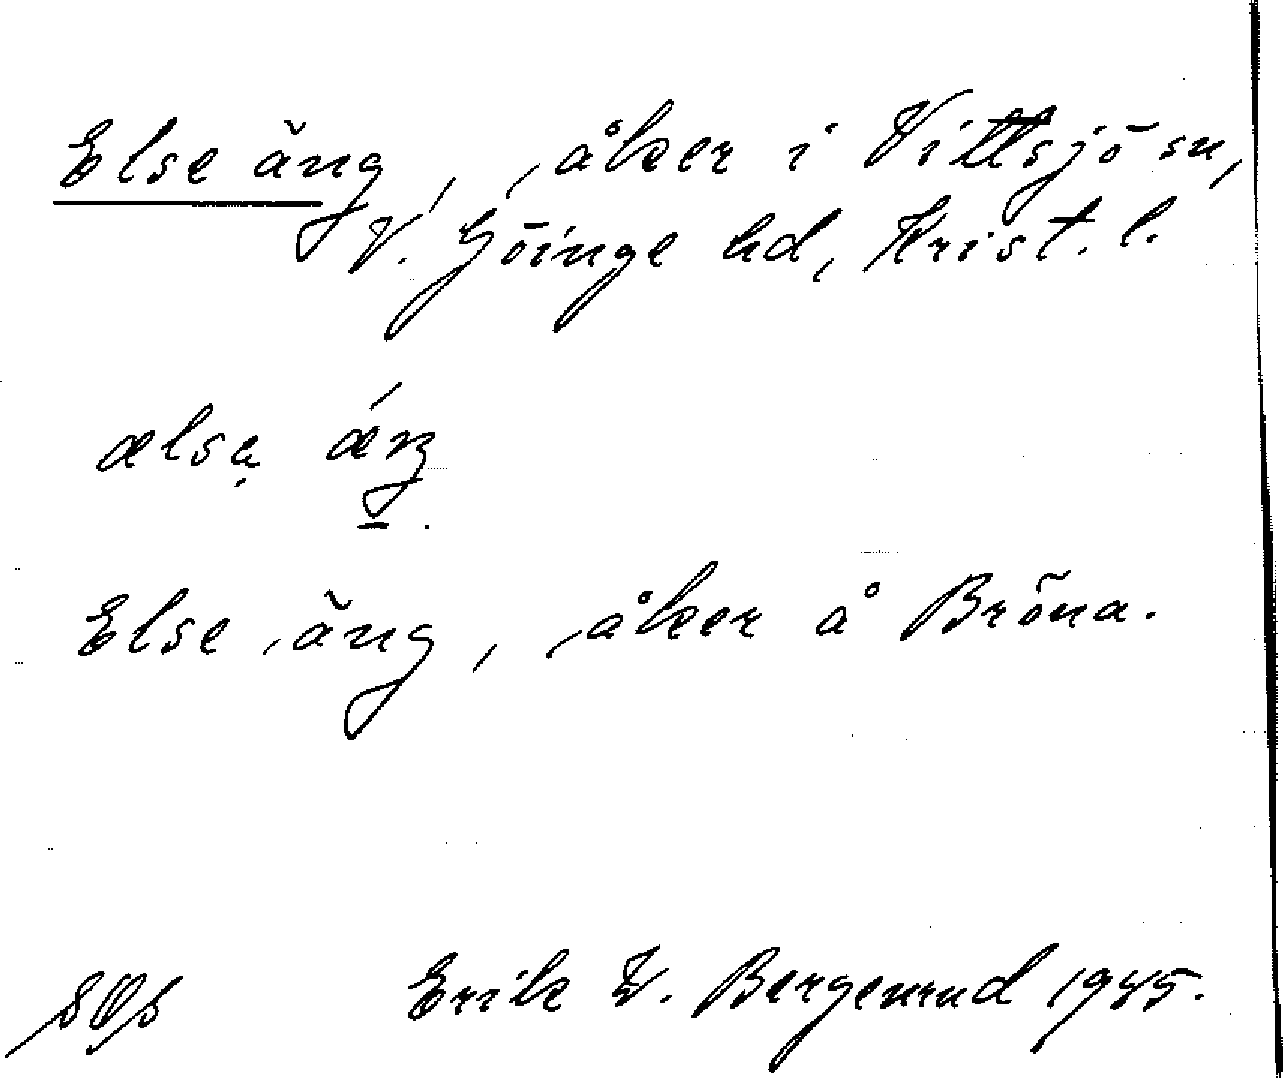 Else äng, åker i Vittsjö sn,
V. Göinge hd, Krist. l.
Else äng, åker å Bröna.
Erik W. Bergenrud 1945.